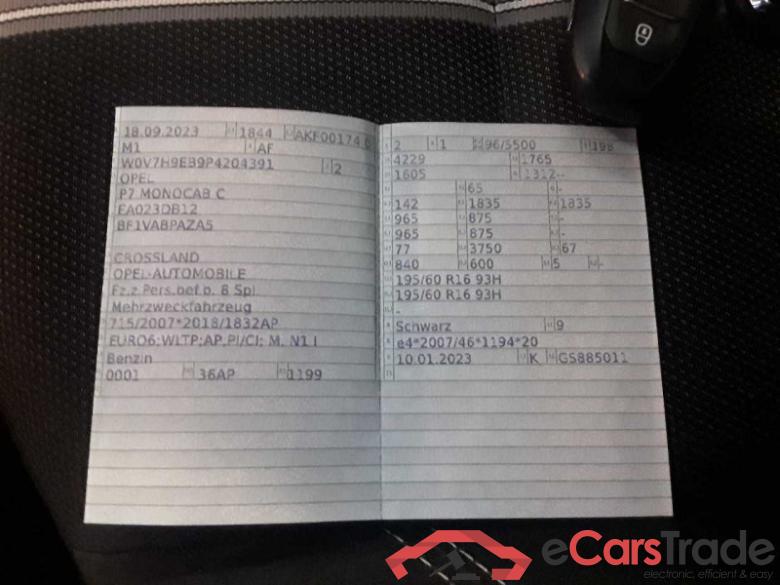 18.09.2023 1844 AKF00174 6
M1 AF
W0V7H9EB9P4204391 2
OPEL
P7 MONOCAB C
EA023DB12
BF1VABPAZA5
CROSSLAND
OPEL-AUTOMOBILE
Fz.z.Pers.bef.b. 8 Spl.
Mehrzweckfahrzeug
715/2007*2018/1832AP
EURO6;WLTP;AP,PI/CI; M, N1 I
Benzin
0001 36AP 1199
2 1 96/5500 198
4229 1765
1605 1312--
65 -
142 1835 1835
965 875 -
965 875 -
77 3750 67
840 600 5 -
195/60 R16 93H
195/60 R16 93H
-
Schwarz 9
e4*2007/46*1194*20
10.01.2023 K GS885011
eCarsTrade
electronic, efficient & easy